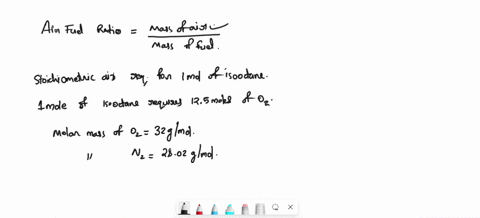 Air Fuel Ratio = Mass of air
Mass of fuel.
Stoichiometric air req. for 1 mol of isooctane.
1 mole of isooctane requires 12.5 moles of O2.
Molar mass of O2 = 32 g/mol.
" N2 = 28.02 g/mol.